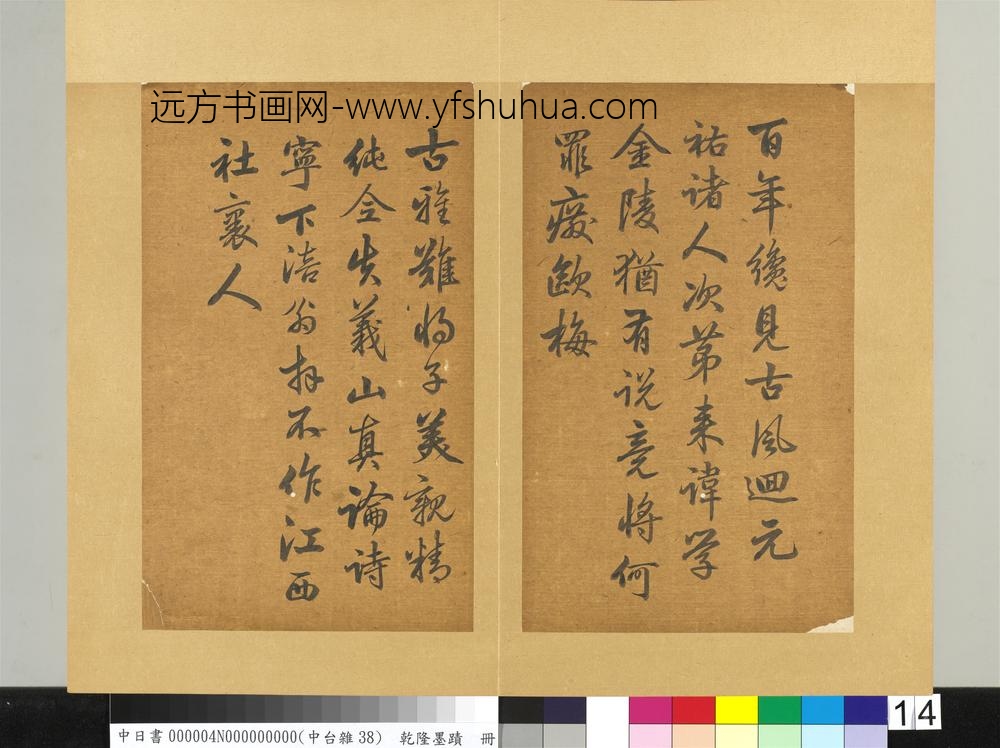 远方书画网-www.yfshuhua.com
百年纔見古風迴元
祐諸人次第來諱学
金陵猶有说竟將何
罪癈歐梅
古雅難将子美親精
純全失義山真論诗
寧下涪翁拜不作江西
社裏人
14
中日書 000004N000000000(中台雜 38) 乾隆墨蹟 冊